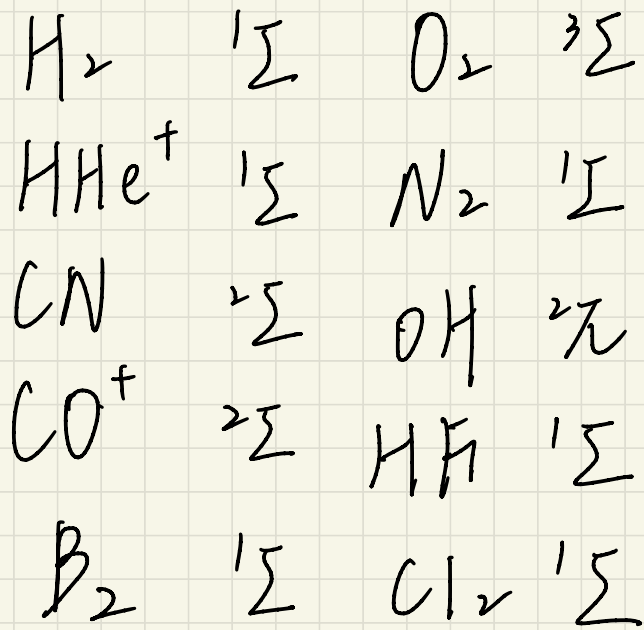 H₂ ¹Σ O₂ ³Σ
HHe⁺ ¹Σ N₂ ¹Σ
CN ²Σ OH ²π
CO⁺ ²Σ HF ¹Σ
B₂ ¹Σ Cl₂ ¹Σ